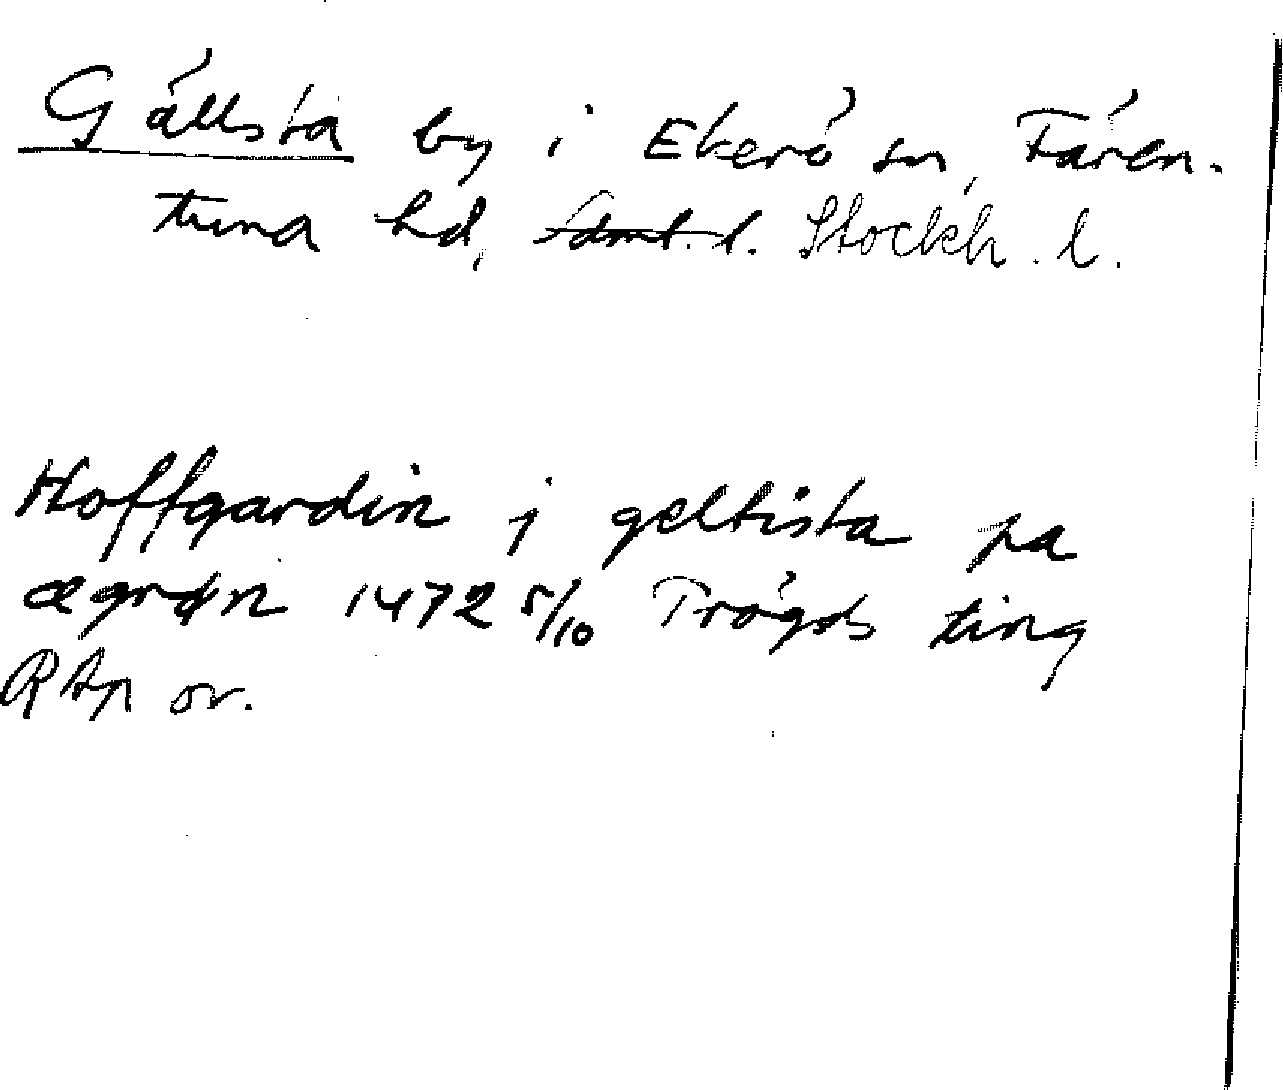 Gällsta by i Ekerö sn, Fären-
tuna hd, Sdml. l. Stockh. l.
Hoffgardin j geltista pa
ægrøn 1472 5/10 Trögds ting
RAp or.